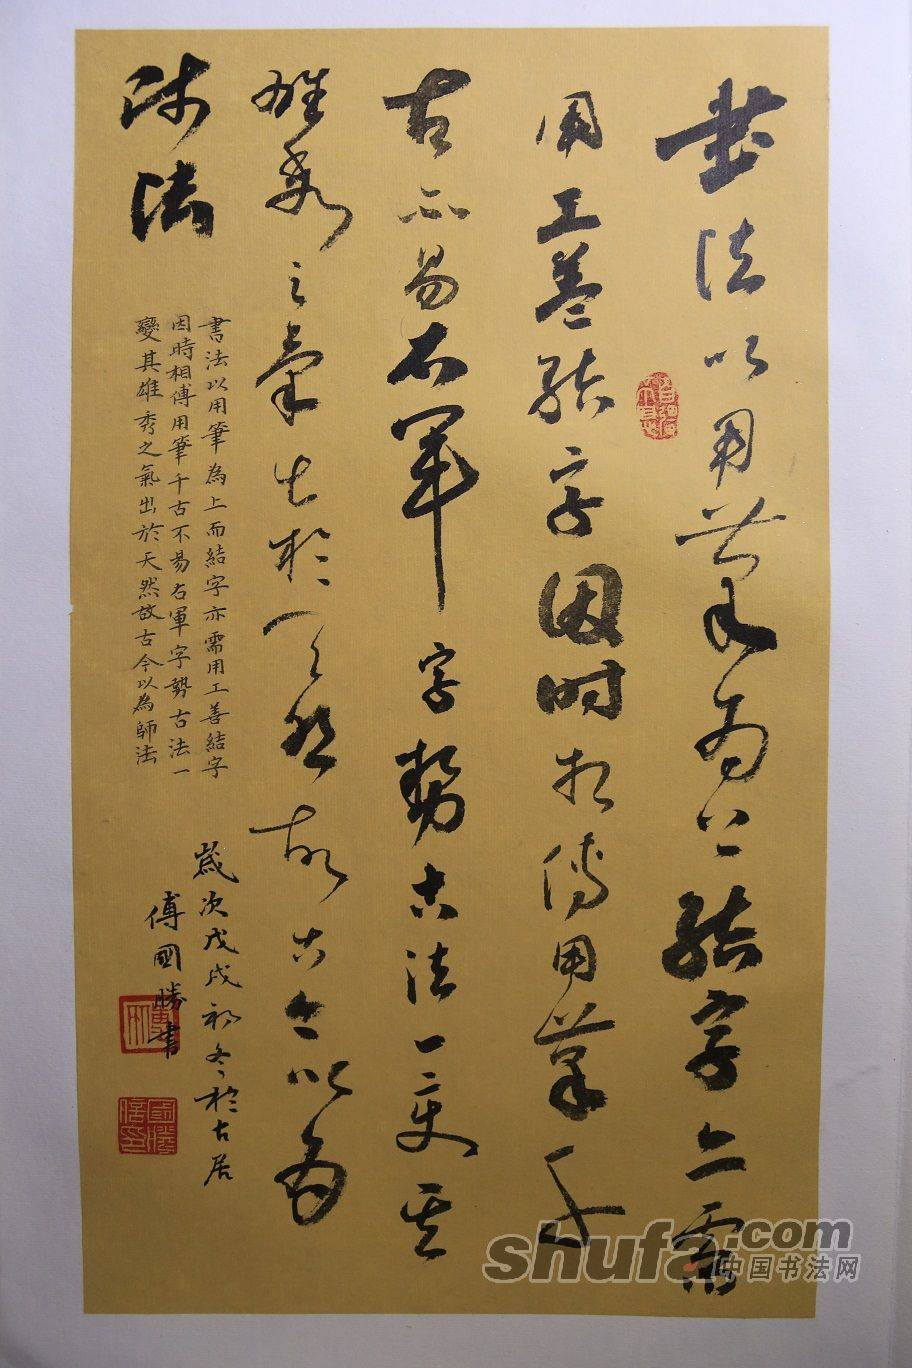 書法以用筆為上結字亦需
用工蓋結字因時相傳用筆千
古不易右軍字勢古法一変其
雄秀之氣出於天然故古今以為
師法
書法以用筆為上而結字亦需用工善結字
因時相傳用筆千古不易右軍字勢古法一
變其雄秀之氣出於天然故古今以為師法
歲次戊戌初冬於古居
傅國勝書
shufa.com
中国书法网